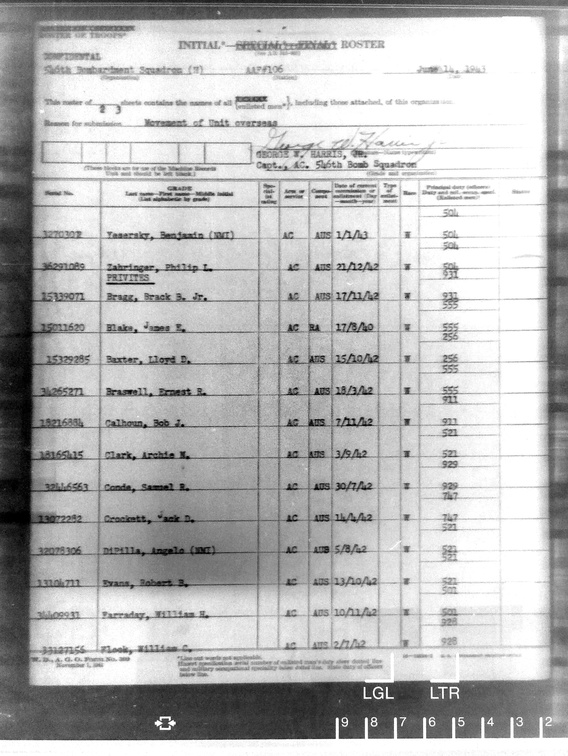 ROSTER OF TROOPS
INITIAL* SPECIAL* FINAL* ROSTER
CONFIDENTIAL
546th Bombardment Squadron (H) AAF#106 June 14, 1943
(Organization) (Station) (Date)
This roster of 2 3 sheets contains the names of all enlisted men*, including those attached, of this organization.
Reason for submission Movement of Unit overseas
George W. Harris, Jr.
GEORGE W. HARRIS, JR.
Capt., AC. 546th Bomb Squadron
(These blocks are for use of the Machine Records Unit and should be left blank.) (Grade and organization)
Serial No. GRADE Last name—First name—Middle initial (List alphabetic by grade) Arm or service Date of current commission or enlistment (Day—month—year) Type of enlistment Race
504
Yesersky, Benjamin (NMI) AC AUS 1/1/43 W 504
504
36291089 Zahringer, Philip L. AC AUS 21/12/42 W 504
PRIVITES 931
15339071 Bragg, Brack B. Jr. AC AUS 17/11/42 W 931
555
15011620 Blake, James E. AC RA 17/8/40 W 555
256
15329285 Baxter, Lloyd D. AC AUS 15/10/42 W 256
555
34265271 Braswell, Ernest R. AC AUS 18/3/42 W 555
911
18216884 Calhoun, Bob J. AC AUS 7/11/42 W 911
521
18165415 Clark, Archie N. AC AUS 3/9/42 W 521
929
32446563 Conde, Samuel R. AC AUS 30/7/42 W 929
747
13072282 Crockett, Jack D. AC AUS 14/4/42 W 747
521
32078306 DiPilla, Angelo (NMI) AC AUS 5/8/42 W 521
521
13104711 Evans, Robert B. AC AUS 13/10/42 W 521
501
34409931 Farraday, William H. AC AUS 10/11/42 W 501
928
33127156 Flook, William C. AC AUS 2/7/42 W 928
W. D., A. G. O. Form No.
November 1,
*Line out words not applicable.
LGL LTR
9 8 7 6 5 4 3 2